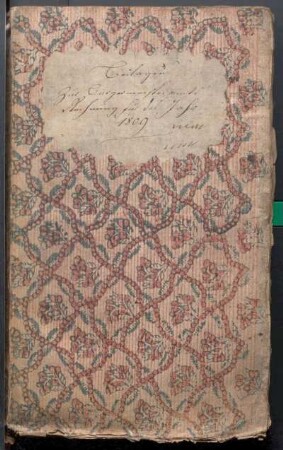 Beilagen
Zur Burgermeisteramts
Rechnung für das Jahr
1809